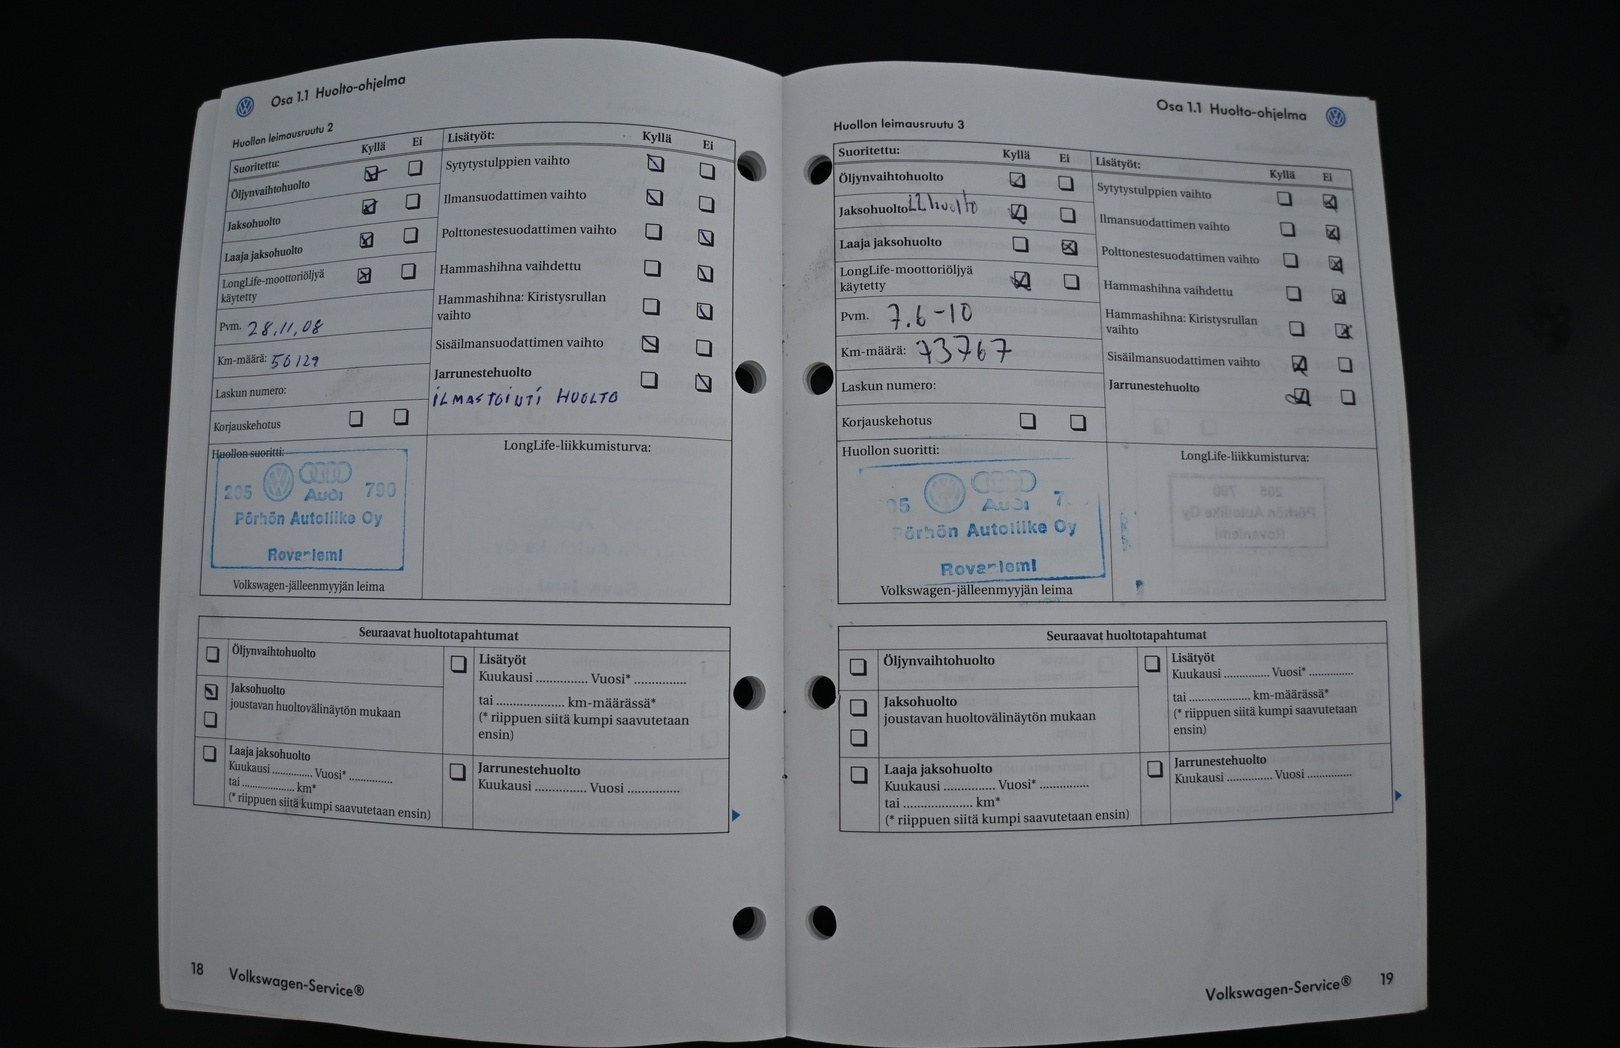 Osa 1.1 Huolto-ohjelma
Huollon leimausruutu 2
Suoritettu: Kyllä Ei
Öljynvaihtohuolto
Jaksohuolto
Laaja jaksohuolto
LongLife-moottoriöljyä
käytetty
Pvm. 28.11.08
Km-määrä: 50129
Laskun numero:
Korjauskehotus
Huollon suoritti:
205 Audi 790
Pörhön Autoliike Oy
Rovaniemi
Volkswagen-jälleenmyyjän leima
Lisätyöt: Kyllä Ei
Sytytystulppien vaihto
Ilmansuodattimen vaihto
Polttonestesuodattimen vaihto
Hammashihna vaihdettu
Hammashihna: Kiristysrullan
vaihto
Sisäilmansuodattimen vaihto
Jarrunestehuolto
ILMASTOINTI HUOLTO
LongLife-liikkumisturva:
Seuraavat huoltotapahtumat
Öljynvaihtohuolto
Jaksohuolto
joustavan huoltovälinäytön mukaan
Laaja jaksohuolto
Kuukausi .............. Vuosi* ...............
tai .................... km*
(* riippuen siitä kumpi saavutetaan ensin)
Lisätyöt
Kuukausi ............... Vuosi* ...............
tai .................... km-määrässä*
(* riippuen siitä kumpi saavutetaan
ensin)
Jarrunestehuolto
Kuukausi ............... Vuosi ...............
18 Volkswagen-Service®
Osa 1.1 Huolto-ohjelma
Huollon leimausruutu 3
Suoritettu: Kyllä Ei
Öljynvaihtohuolto
Jaksohuolto LL huolto
Laaja jaksohuolto
LongLife-moottoriöljyä
käytetty
Pvm. 7.6-10
Km-määrä: 73767
Laskun numero:
Korjauskehotus
Huollon suoritti:
05 Audi 7
Pörhön Autoliike Oy
Rovaniemi
Volkswagen-jälleenmyyjän leima
Lisätyöt: Kyllä Ei
Sytytystulppien vaihto
Ilmansuodattimen vaihto
Polttonestesuodattimen vaihto
Hammashihna vaihdettu
Hammashihna: Kiristysrullan
vaihto
Sisäilmansuodattimen vaihto
Jarrunestehuolto
LongLife-liikkumisturva:
Seuraavat huoltotapahtumat
Öljynvaihtohuolto
Jaksohuolto
joustavan huoltovälinäytön mukaan
Laaja jaksohuolto
Kuukausi ............... Vuosi* ...............
tai ..................... km*
(* riippuen siitä kumpi saavutetaan ensin)
Lisätyöt
Kuukausi .............. Vuosi* ..............
tai .................... km-määrässä*
(* riippuen siitä kumpi saavutetaan
ensin)
Jarrunestehuolto
Kuukausi .............. Vuosi ..............
Volkswagen-Service® 19